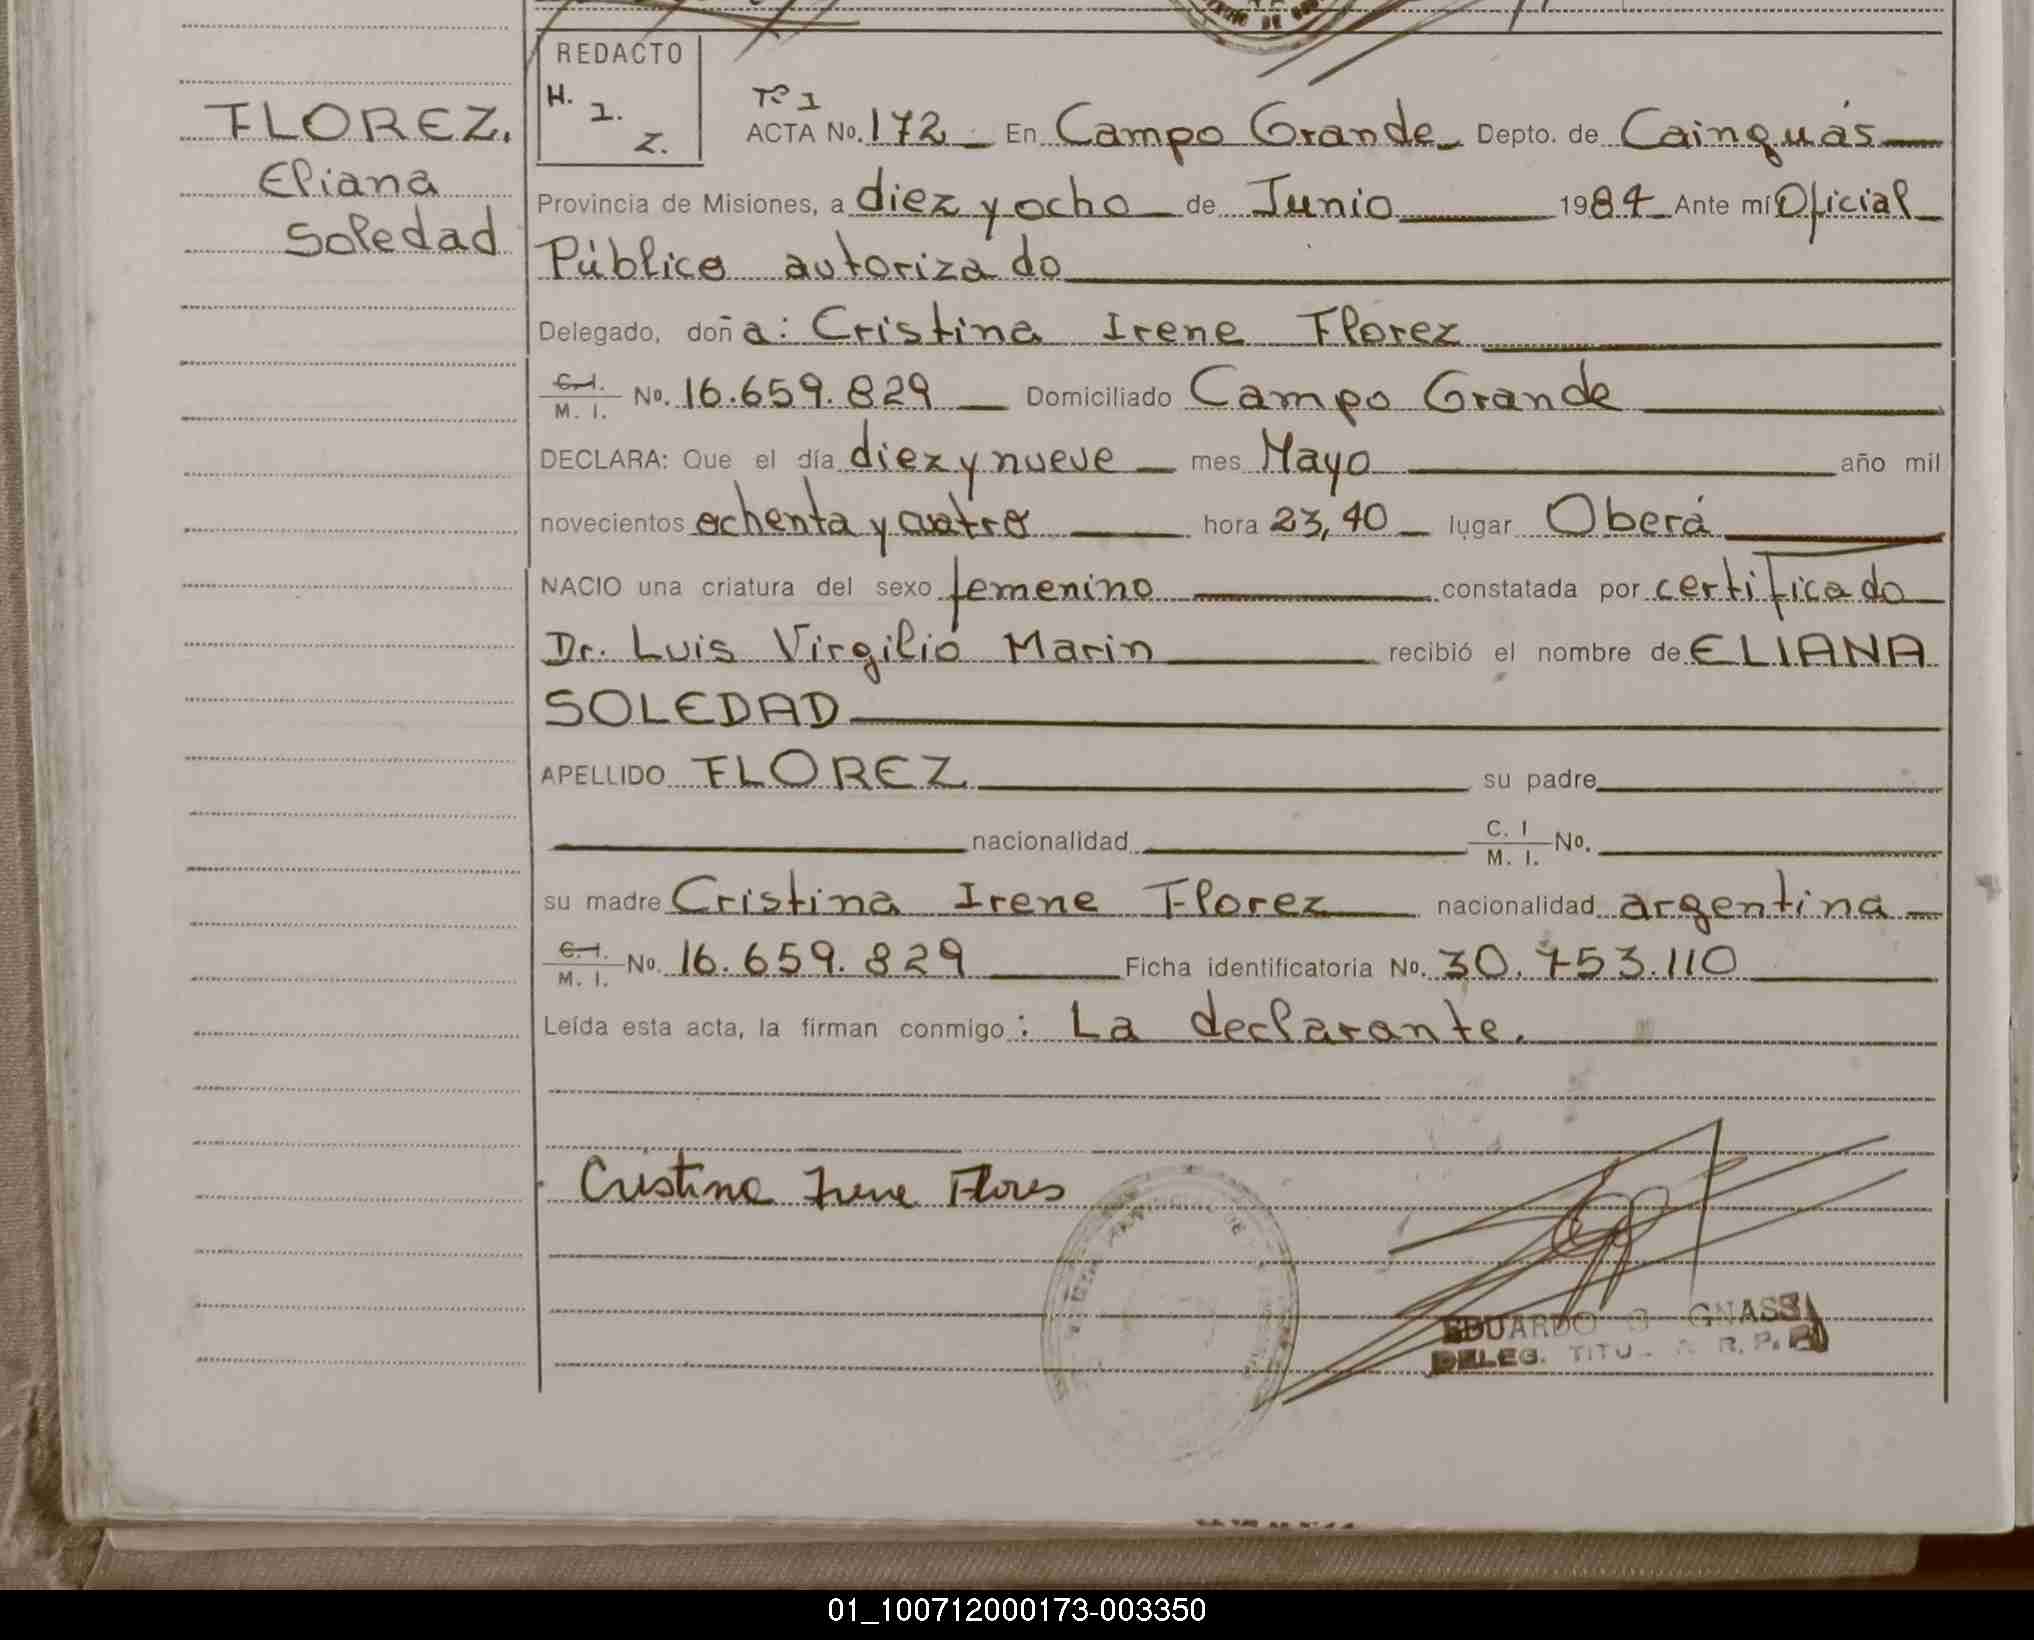 REDACTO
H. I. Z.
FLOREZ,
Eliana
Soledad
Tº 1
ACTA No. 172 En Campo Grande Depto. de Cainguás
Provincia de Misiones, a diez y ocho de Junio 1984 Ante mí Oficial
Público autorizado
Delegado, doña: Cristina Irene Florez
C.I. M. I. No. 16.659.829 Domiciliado Campo Grande
DECLARA: Que el día diez y nueve mes Mayo año mil
novecientos ochenta y cuatro hora 23,40 lugar Oberá
NACIO una criatura del sexo femenino constatada por certificado
Dr. Luis Virgilio Marin recibió el nombre de ELIANA
SOLEDAD
APELLIDO FLOREZ su padre
nacionalidad C. I M. I. No.
su madre Cristina Irene Florez nacionalidad argentina
C.I. M. I. No. 16.659.829 Ficha identificatoria No. 30.753.110
Leída esta acta, la firman conmigo: La declarante.
Cristina Irene Flores
EDUARDO GNASS
DELEG. TITU R. P.
01_100712000173-003350